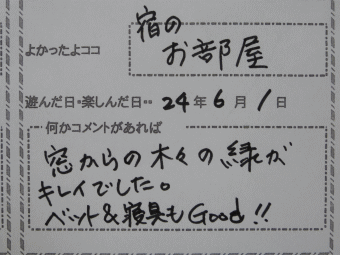 宿の
よかったよココ お部屋
遊んだ日・楽しんだ日・・ 24年6月1日
何かコメントがあれば
窓からの木々の緑が
キレイでした。
ベット&寝具もGood!!